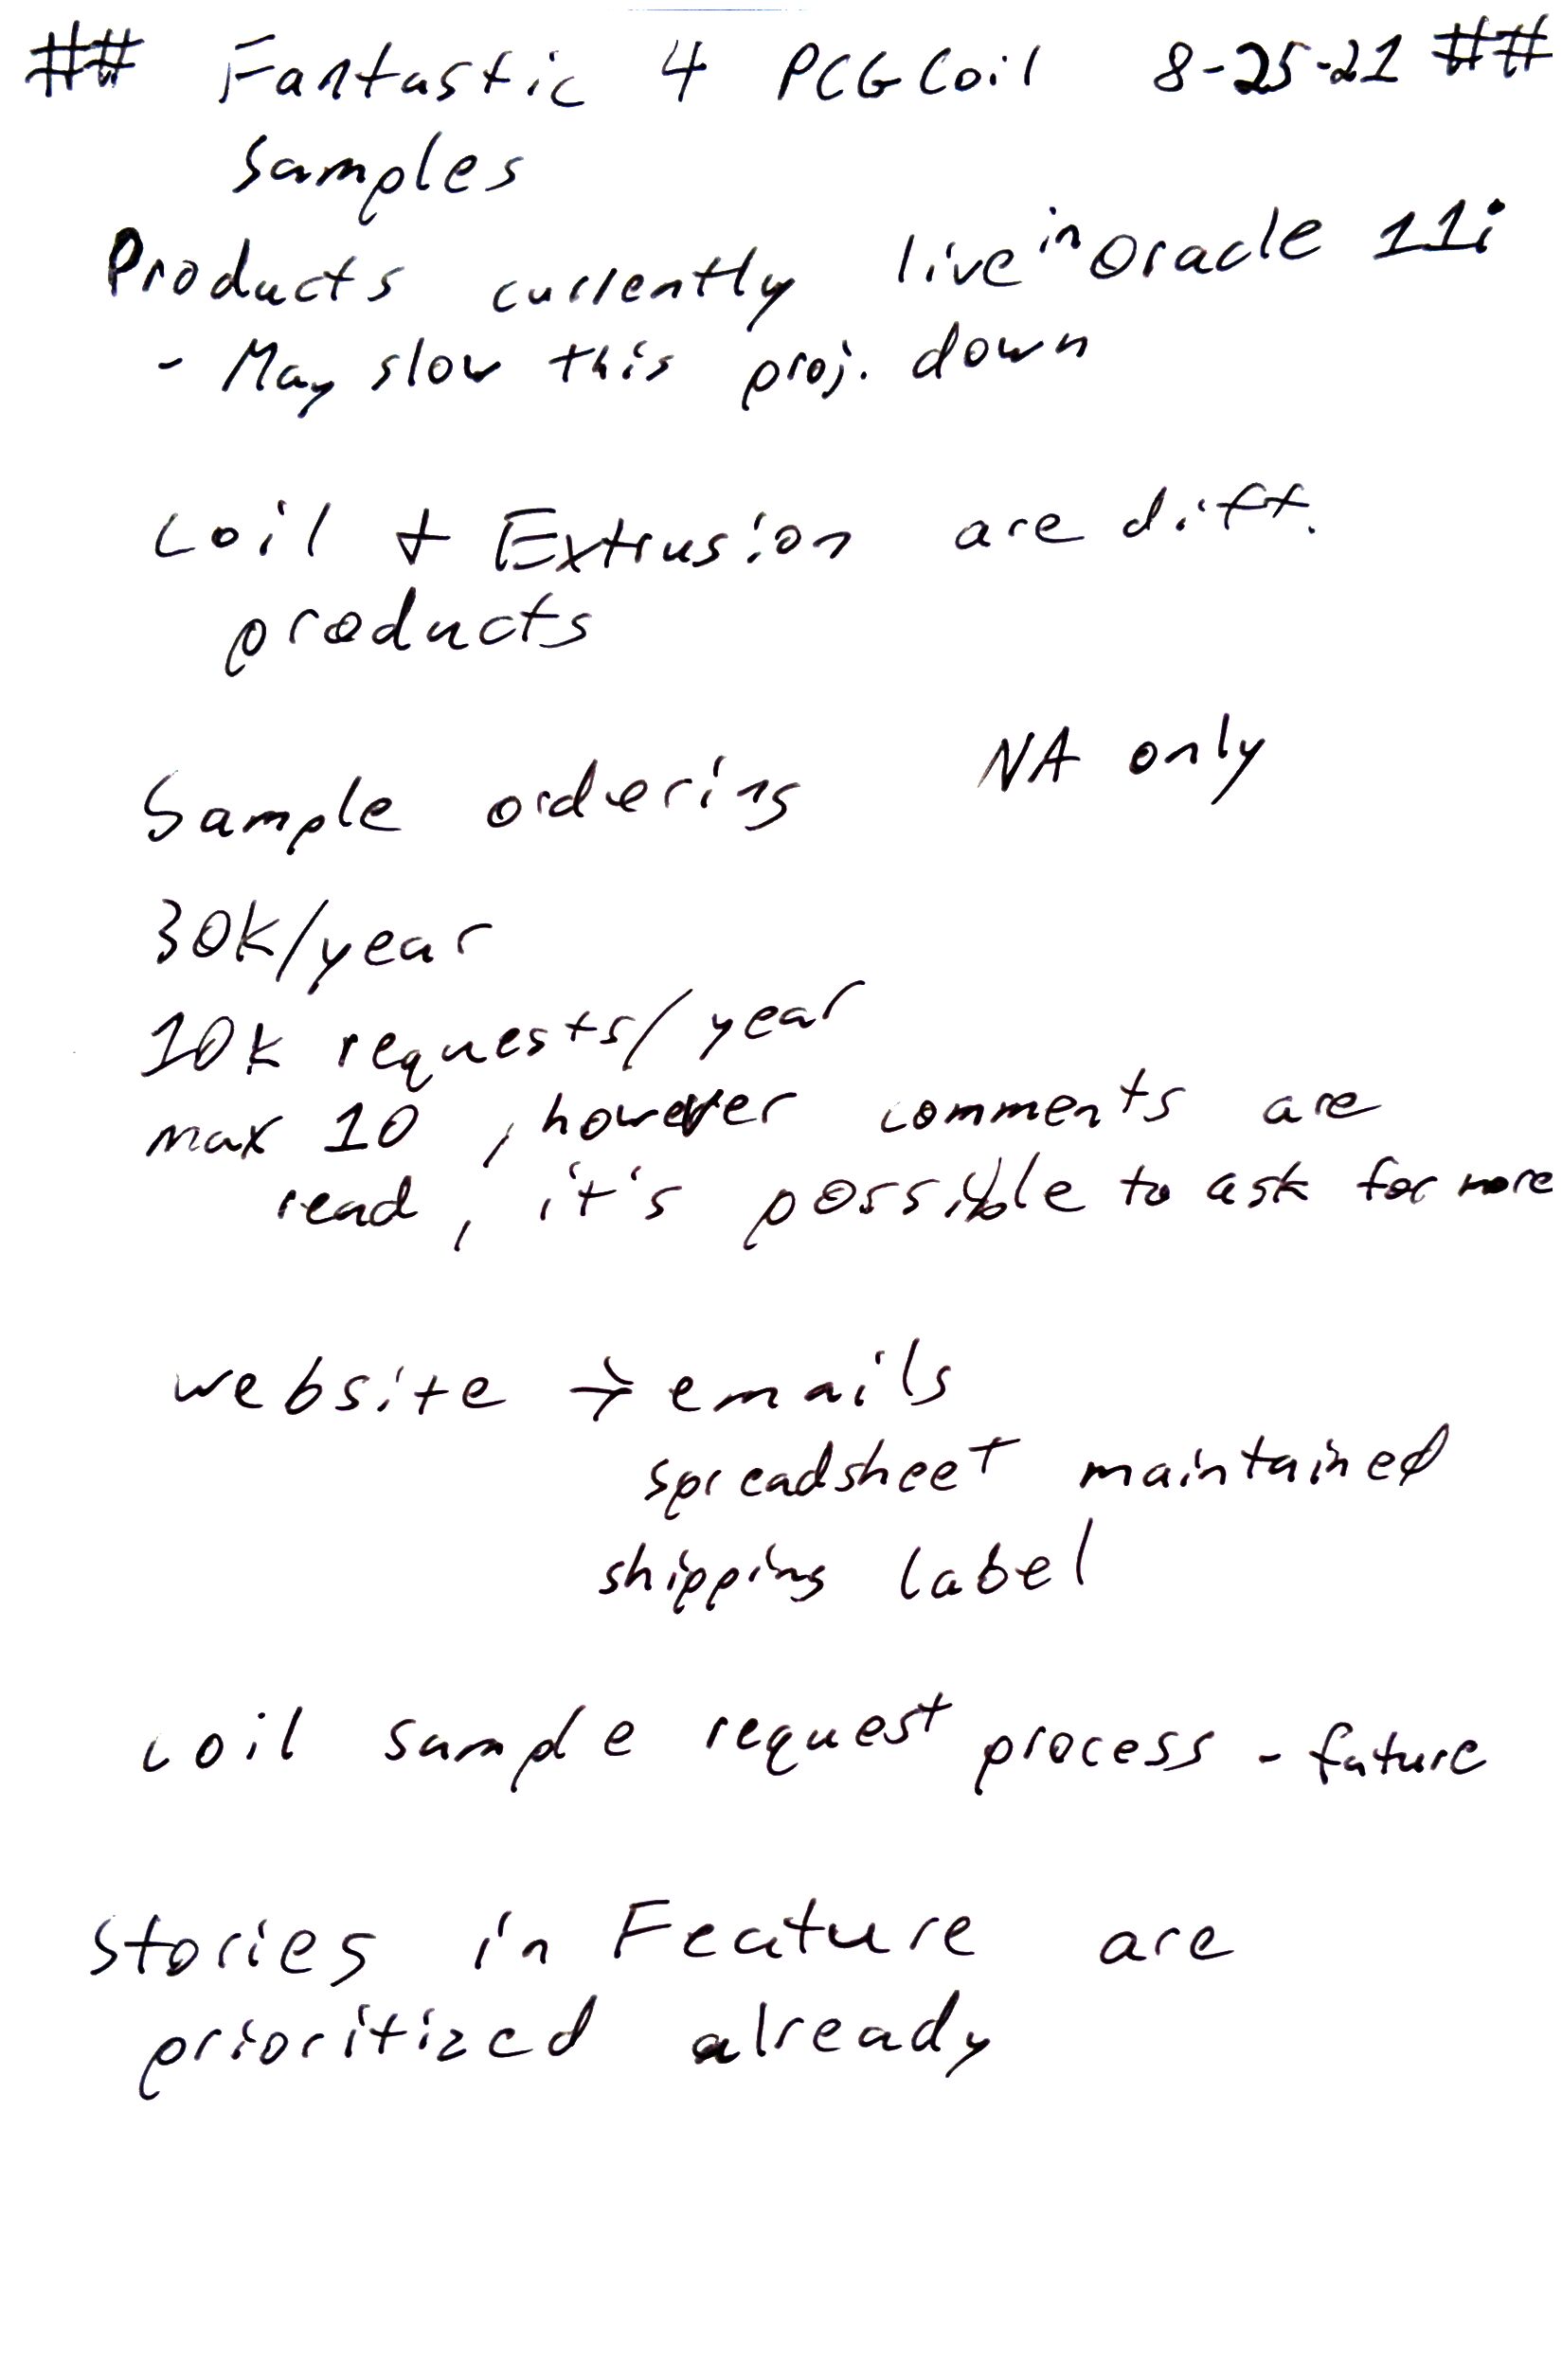 ## Fantastic 4 PCG Coil 8-25-21 ##
Samples
Products currently live in Oracle 11i
- May slow this proj. down
Coil + Extrusion are diff.
products
Sample ordering NA only
30K/year
10k requests/year
max 10, however comments are
read, it's possible to ask for more
website → emails
spreadsheet maintained
shipping label
coil sample request process - future
Stories in Feature are
prioritized already